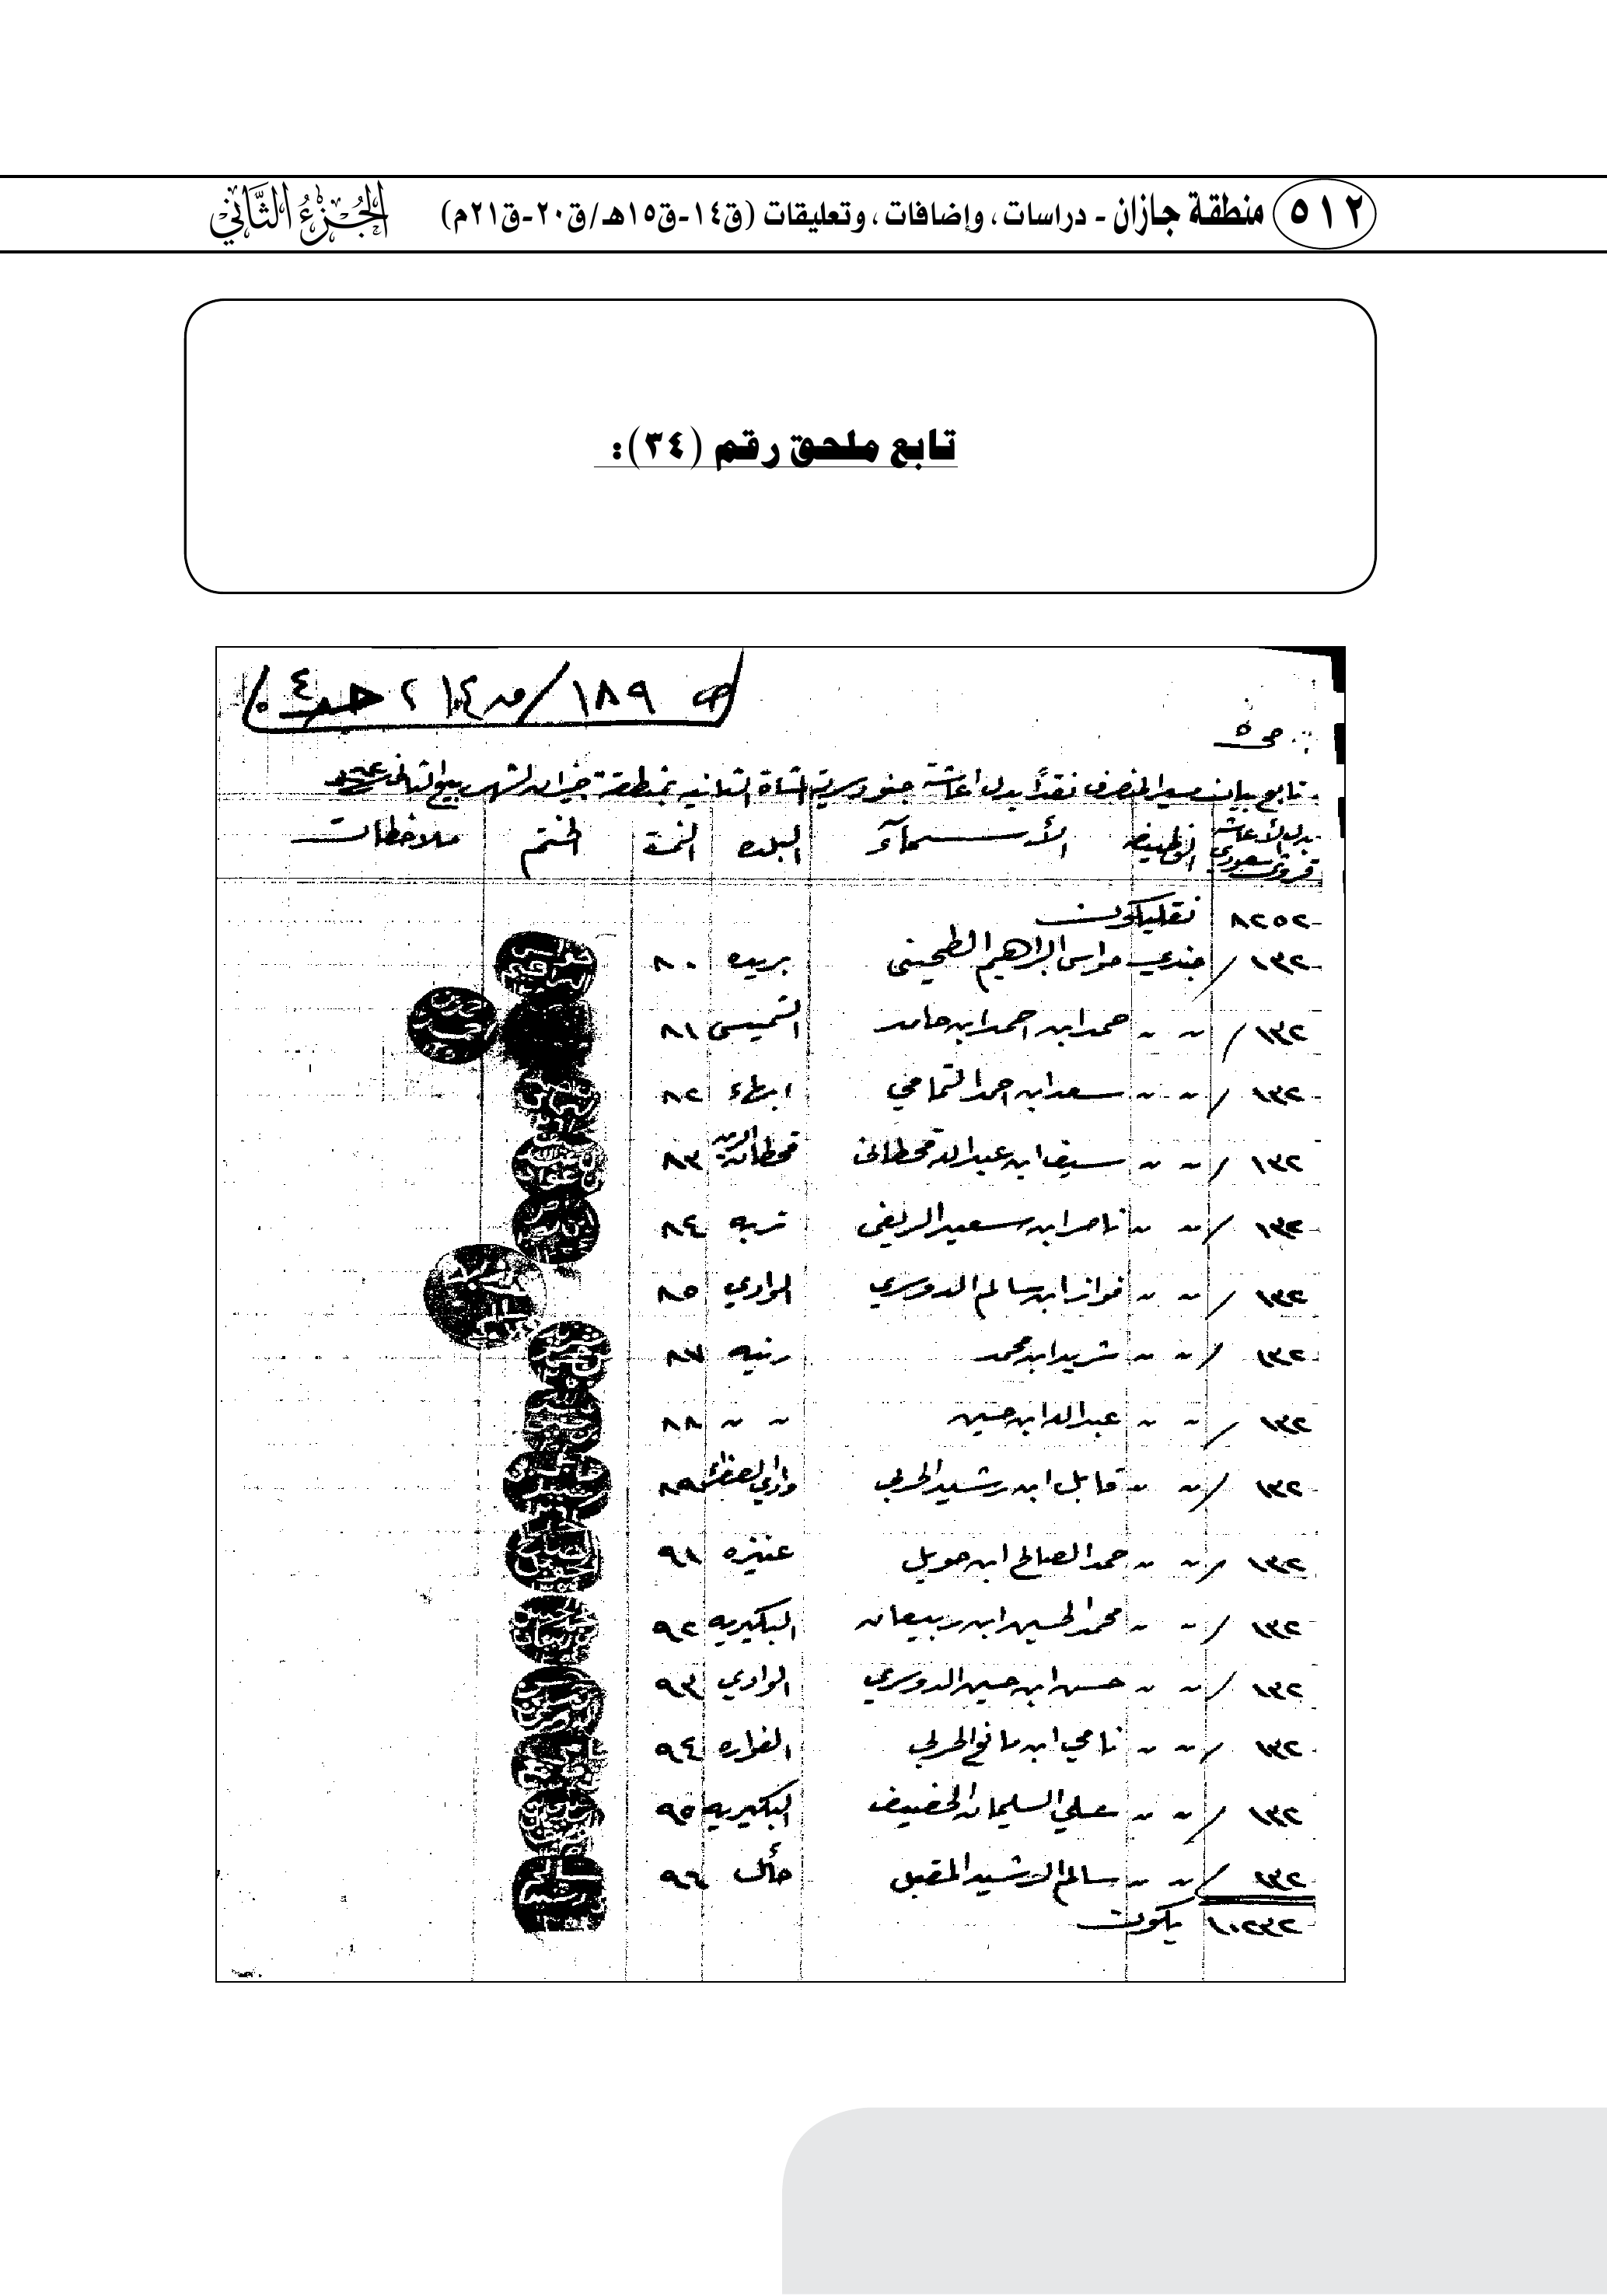 ٥١٢ منطقة جازان - دراسات، وإضافات، وتعليقات (ق١٤-ق١٥هـ/ق٢٠-ق٢١م) الجزء الثاني
تابع ملحق رقم (٣٤):
١٨٩
تابع بيان نقداً بدل اعاشة جنود سرية المشاة الثانيه بمنطقة جيزان لشهر ربيع الثاني
بدل الأعاشه قروش سعودي الوظيفه الأسمآء البلده النمرة الختم ملاحظات
٨٢٥٢ نقليكون
١٣٢ / جندي حواس البراهيم الطحيني بريده ٨٠
١٣٢ / " " حمد ابن احمد ابن حامد الشميسي ٨١
١٣٢ / " " سعد ابن احمد الشمامي ٨٢
١٣٢ / " " سيف ابن عبدالله قحطاني قحطان ٨٣
١٣٢ / " " ناصر ابن سعيد تربه ٨٤
١٣٢ / " " فواز ابن سالم الدوسري الوادي ٨٥
١٣٢ / " " شريد ابن محمد رنيه ٨٧
١٣٢ / " " عبدالله ابن حسين " " ٨٨
١٣٢ / " " قابل ابن رشيد الحربي وادي الصفراء ٨٩
١٣٢ / " " حمد الصالح ابن حويل عنيزه ٩١
١٣٢ / " " محمد الحسين ابن ربيعان البكيريه ٩٢
١٣٢ / " " حسن ابن حسين الدوسري الوادي ٩٣
١٣٢ / " " نامي ابن مانع الحربي الفواره ٩٤
١٣٢ / " " علي السليمان الخضيف البكيريه ٩٥
١٣٢ / " " سالم الرشيد المقبل حائل ٩٦
١٠٢٣٢ يكون